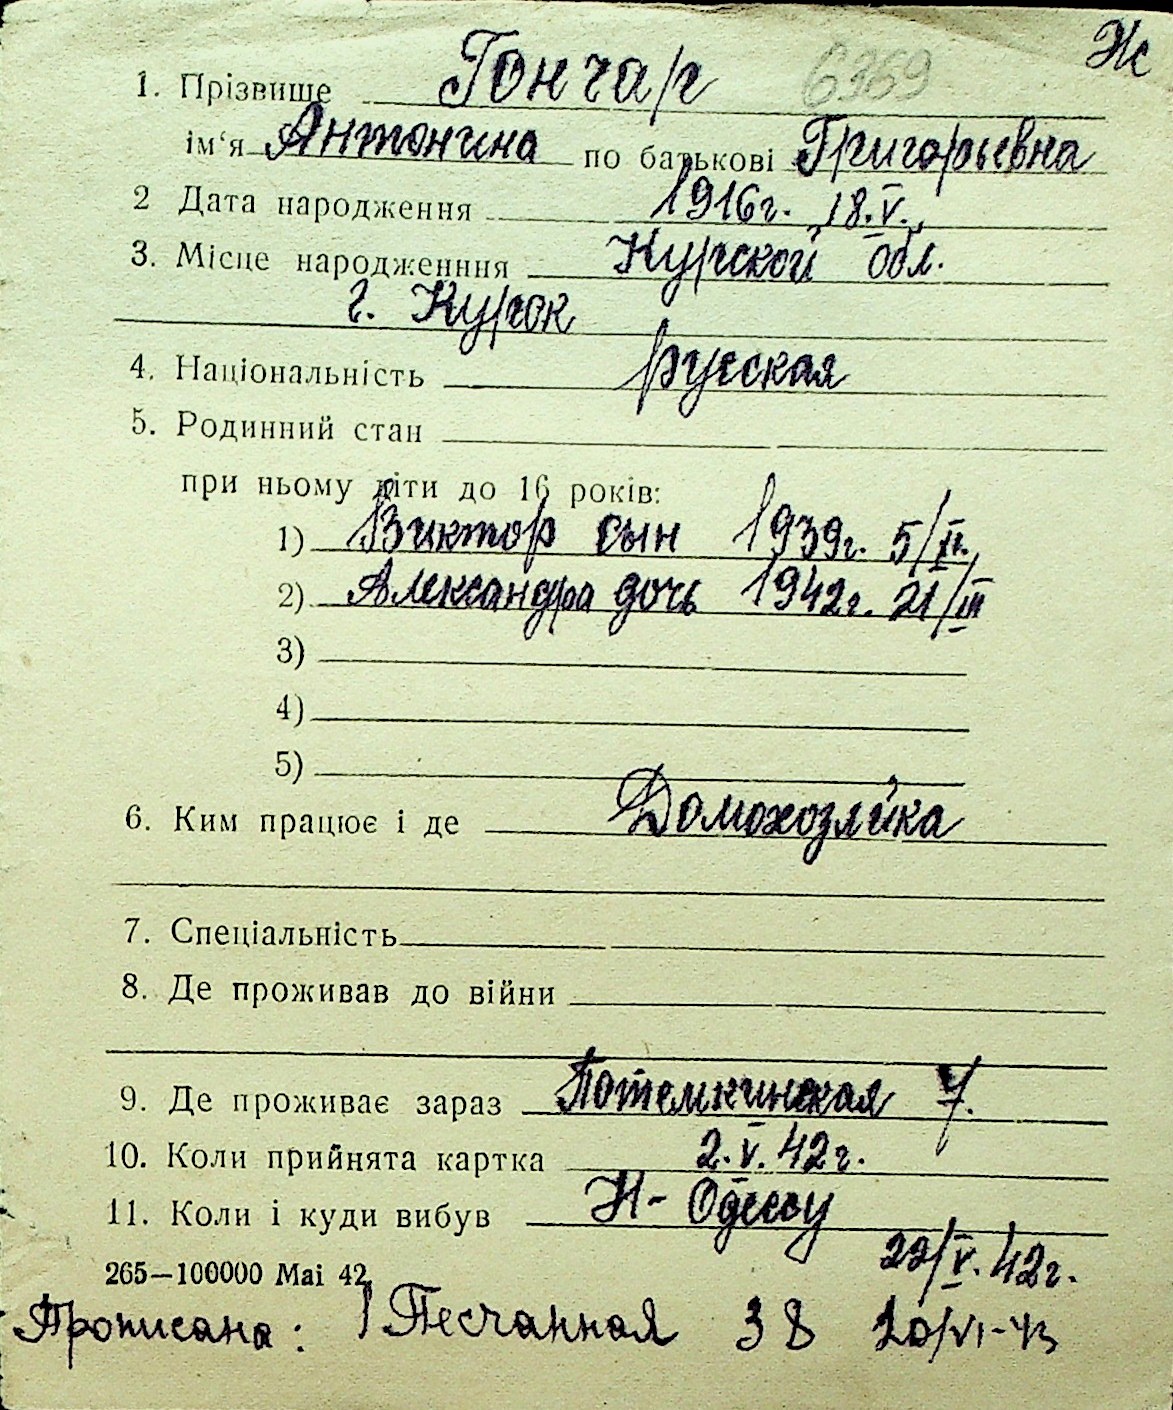 Ж
6369
1. Прізвище Гончар
ім'я Антонина по батькові Григорьевна
2 Дата народження 1916г. 18.V.
3. Місце народженння Курской обл.
г. Курск
4. Національність русская
5. Родинний стан
при ньому діти до 16 років:
1) Виктор сын 1939г. 5/II.
2) Александра дочь 1942г. 21/III
3)
4)
5)
6. Ким працює і де Домохозяйка
7. Спеціальність
8. Де проживав до війни
9. Де проживає зараз Потемкинская 7.
10. Коли прийнята картка 2.V.42г.
11. Коли і куди вибув Н-Одессу
22/V.42г.
265—100000 Маі 42
Прописана: I Песчанная 38 20/VI-43